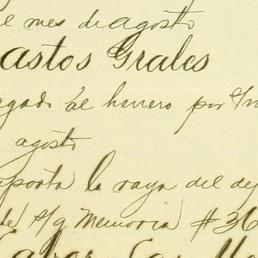 el mes de agosto
astos Grales
egado al herrero por
agosto
mporta la raya del de
de s/q Memoria #36